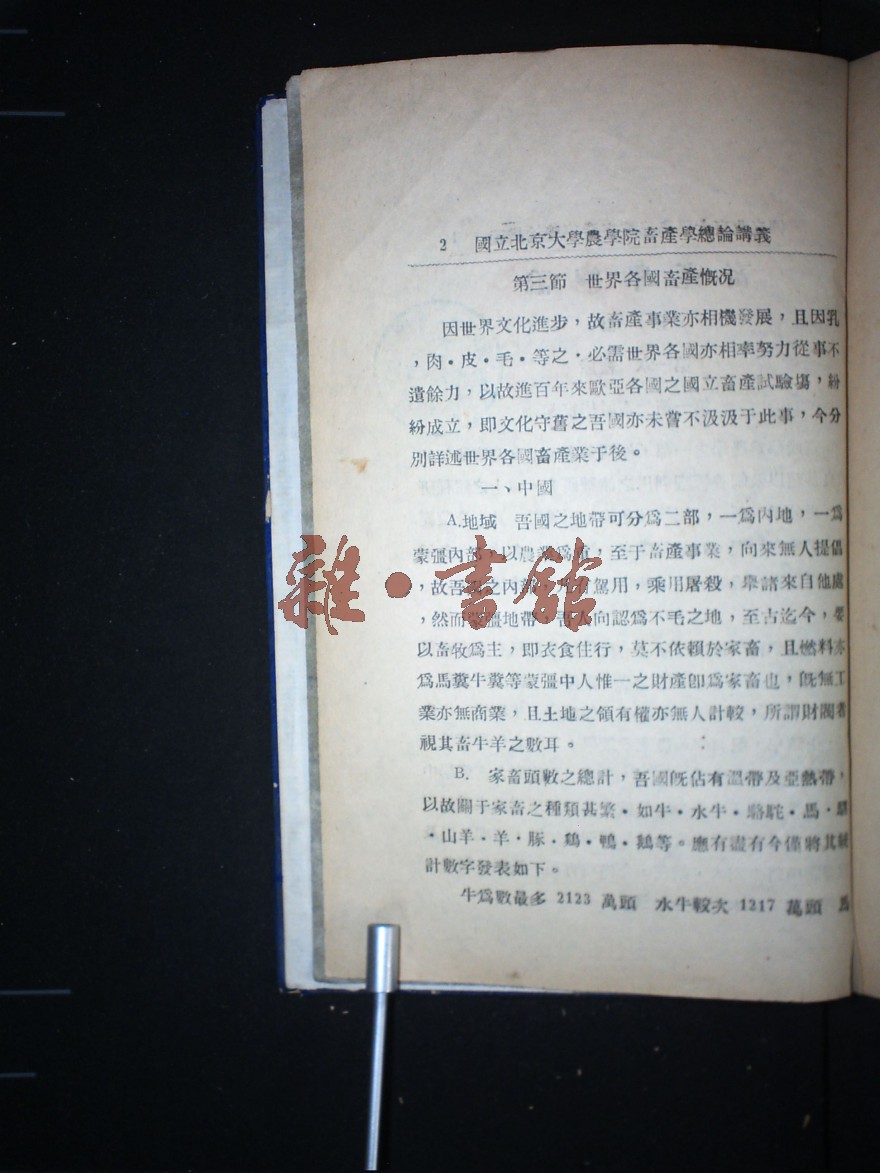 2 國立北京大學農學院畜產學總論講義
第三節 世界各國畜產慨况
因世界文化進步，故畜產事業亦相機發展，且因乳
，肉・皮・毛・等之・必需世界各國亦相率努力從事不
遺餘力，以故進百年來歐亞各國之國立畜產試驗塲，紛
紛成立，即文化守舊之吾國亦未嘗不汲汲于此事，今分
別詳述世界各國畜產業于後。
一、中國
A.地域 吾國之地帶可分爲二部，一爲內地，一爲
蒙彊內部，以農業爲 ，至于畜產事業，向來無人提倡
，故吾 之內部， 駕用，乘用屠殺，率諸來自他處
，然而 地帶，吾人向認爲不毛之地，至古迄今，要
以畜牧爲主，即衣食住行，莫不依賴於家畜，且燃料亦
爲馬糞牛糞等蒙彊中人惟一之財產卽爲家畜也，旣無工
業亦無商業，且土地之領有權亦無人計較，所謂財閥者
視其畜牛羊之數耳。
B. 家畜頭數之總計，吾國旣佔有溫帶及亞熱帶，
以故關于家畜之種類甚繁・如牛・水牛・駱駝・馬・騾
・山羊・羊・豚・鷄・鴨・鵝等。應有盡有今僅將其統
計數字發表如下。
牛爲數最多 2123 萬頭 水牛較次 1217 萬頭 馬
雜・書館